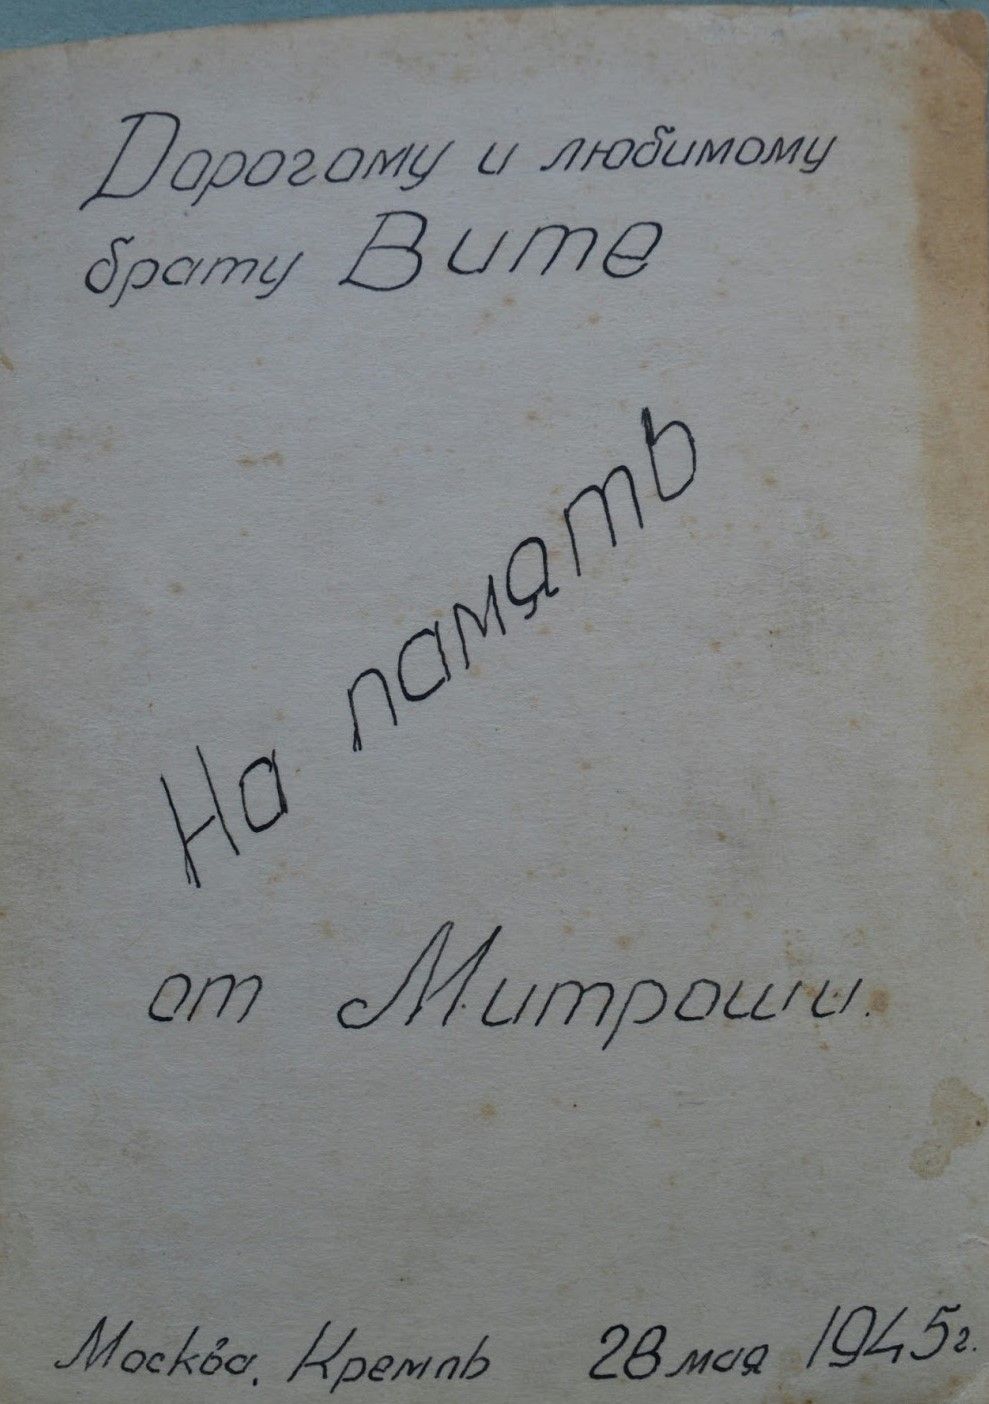 Дорогому и любимому
брату Вите
На память
от Митроши.
Москва, Кремль 28 мая 1945г.